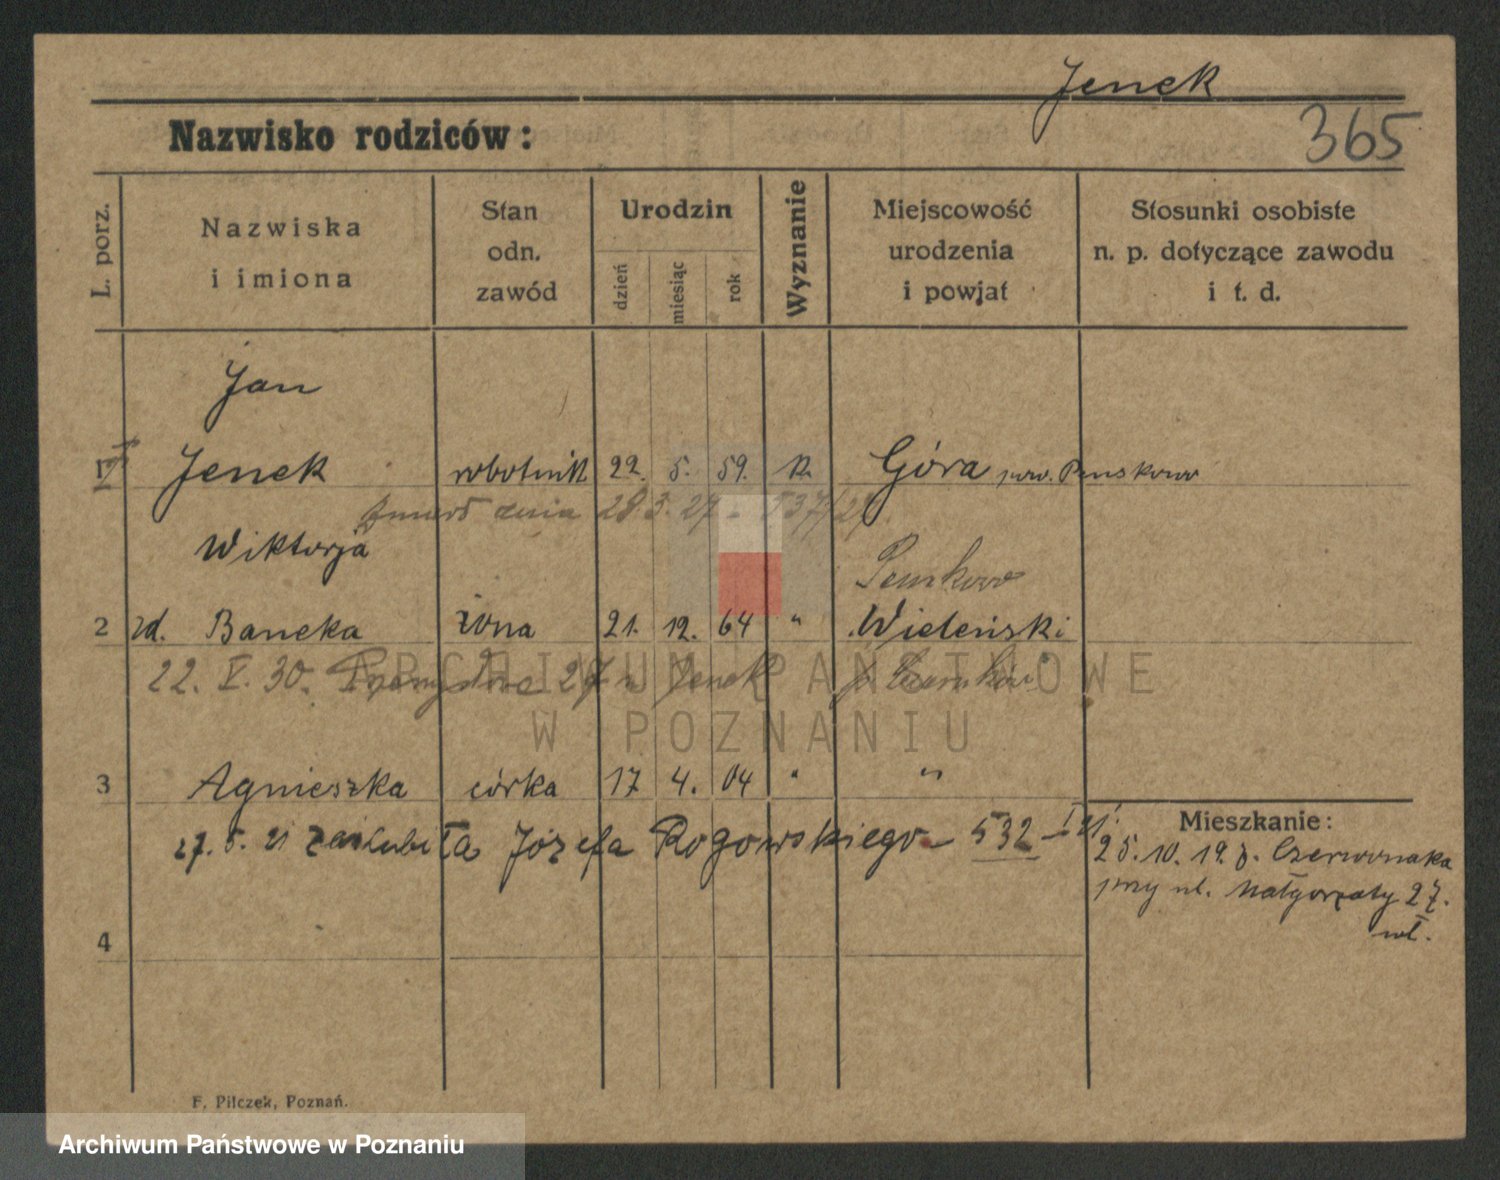 Jenek
365
Nazwisko rodziców:
L. porz.
Nazwiska
i imiona
Stan
odn.
zawód
Urodzin
dzień
miesiąc
rok
Wyznanie
Miejscowość
urodzenia
i powjat
Stosunki osobiste
n. p. dotyczące zawodu
i t. d.
Jan
1 Jenek robotnik 22. 5. 59. k. Góra pow.
zmarł dnia 28 3. 29 - 537/29
Wiktorja
2 zd. Baneka żona 21. 12. 64 " Wieleński
22. V. 30. 27 Jenek
ARCHIWUM PAŃSTWOWE
W POZNANIU
3 Agnieszka córka 17 4. 04 " "
27. 5. 21 zaślubiła Józefa Rogowskiego - 532 - 21
Mieszkanie:
25. 10. 19. z. Czerwonaka
przy ul. Małgorzaty 27.
wł.
4
F. Pilczek, Poznań.
Archiwum Państwowe w Poznaniu